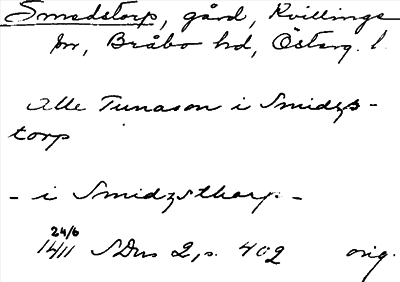 Smedstorp, gård, Kvillinge
sn, Bråbo hd, Östерg. l.
Alle Tunason i Smidzs-
torp
- i Smidzsthorp -
24/6
1411 SDns 2, s. 402 orig.